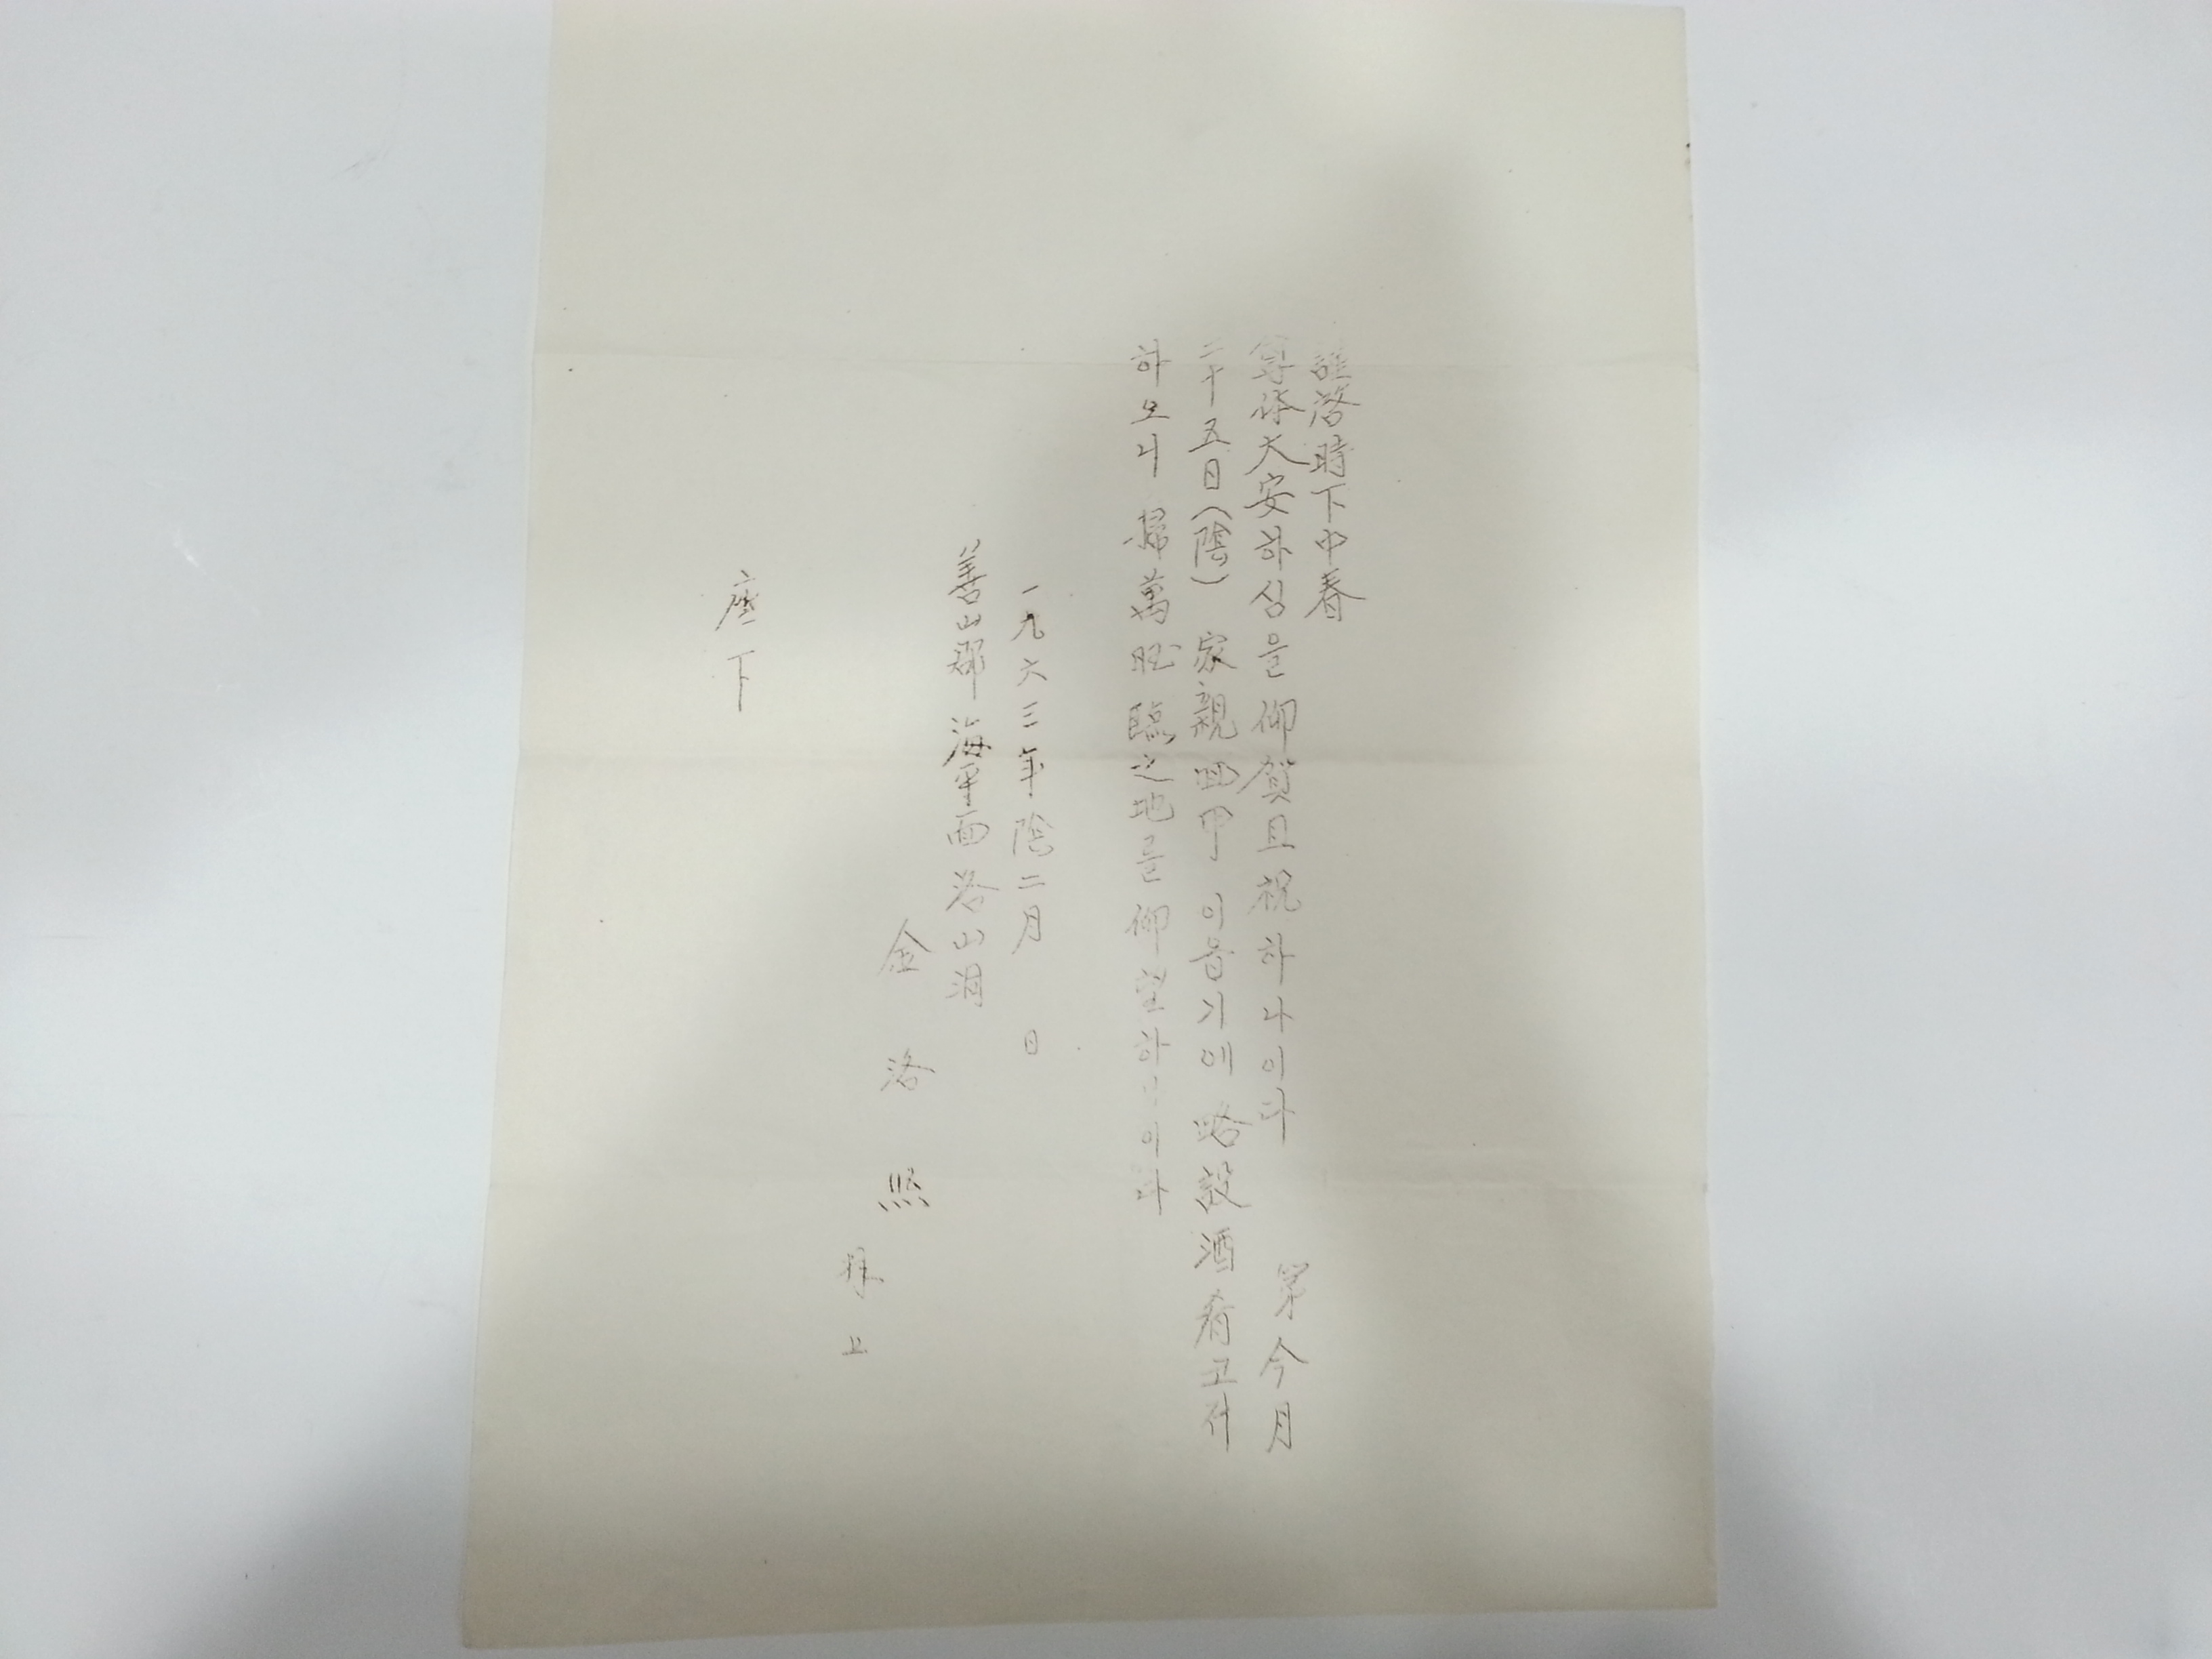 謹啓時下中春
尊體大安하심을 仰賀且祝하나이다 第今月
二十五日(陰) 家親 回甲 이옵기에 略設酒肴코저
하오니 掃萬 臨之地를 仰望하나이다
一九六三年 陰二月 日
善山郡 海平面 洛山洞
金洛
拜上
座下